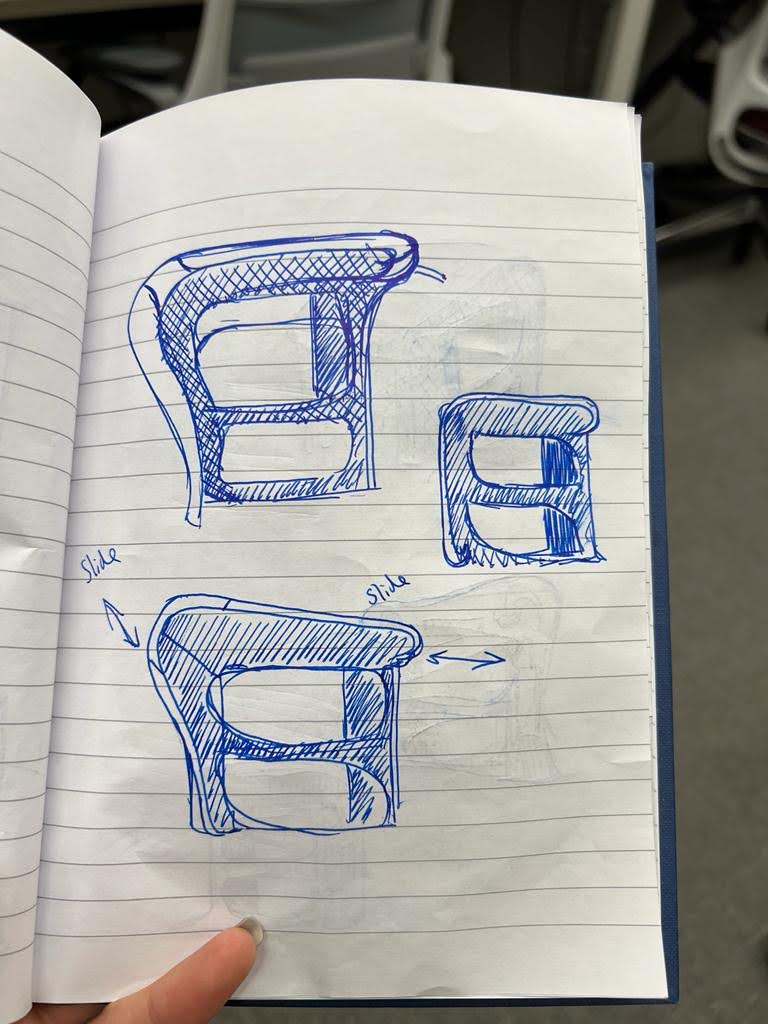 Slide
Slide